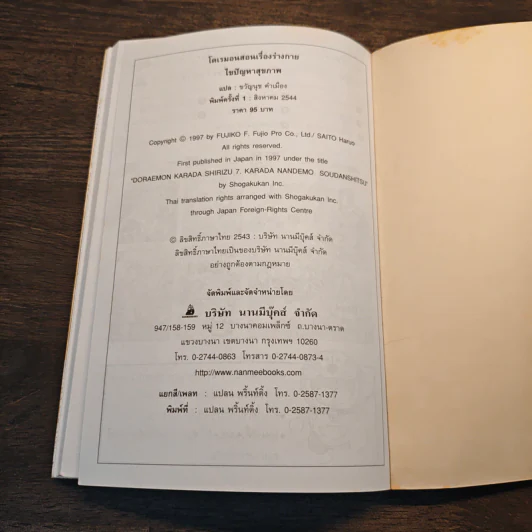 โดเรมอนสอนเรื่องร่างกาย
ไขปัญหาสุขภาพ
แปล : ขวัญนุช คำเมือง
พิมพ์ครั้งที่ 1 : สิงหาคม 2544
ราคา 95 บาท
Copyright © 1997 by FUJIKO F. Fujio Pro Co., Ltd./ SAITO Haruo
All rights reserved.
First published in Japan in 1997 under the title
"DORAEMON KARADA SHIRIZU 7. KARADA NANDEMO. SOUDANSHITSU"
by Shogakukan Inc.
Thai translation rights arranged with Shogakukan Inc.
through Japan Foreign-Rights Centre
© ลิขสิทธิ์ภาษาไทย 2543 : บริษัท นานมีบุ๊คส์ จำกัด
ลิขสิทธิ์ภาษาไทยเป็นของบริษัท นานมีบุ๊คส์ จำกัด
อย่างถูกต้องตามกฎหมาย
จัดพิมพ์และจัดจำหน่ายโดย
บริษัท นานมีบุ๊คส์ จำกัด
947/158-159 หมู่ 12 บางนาคอมเพล็กซ์ ถ.บางนา-ตราด
แขวงบางนา เขตบางนา กรุงเทพฯ 10260
โทร. 0-2744-0863 โทรสาร 0-2744-0873-4
http://www.nanmeebooks.com
แยกสี/เพลท : แปลน พริ้นท์ติ้ง โทร. 0-2587-1377
พิมพ์ที่ : แปลน พริ้นท์ติ้ง โทร. 0-2587-1377